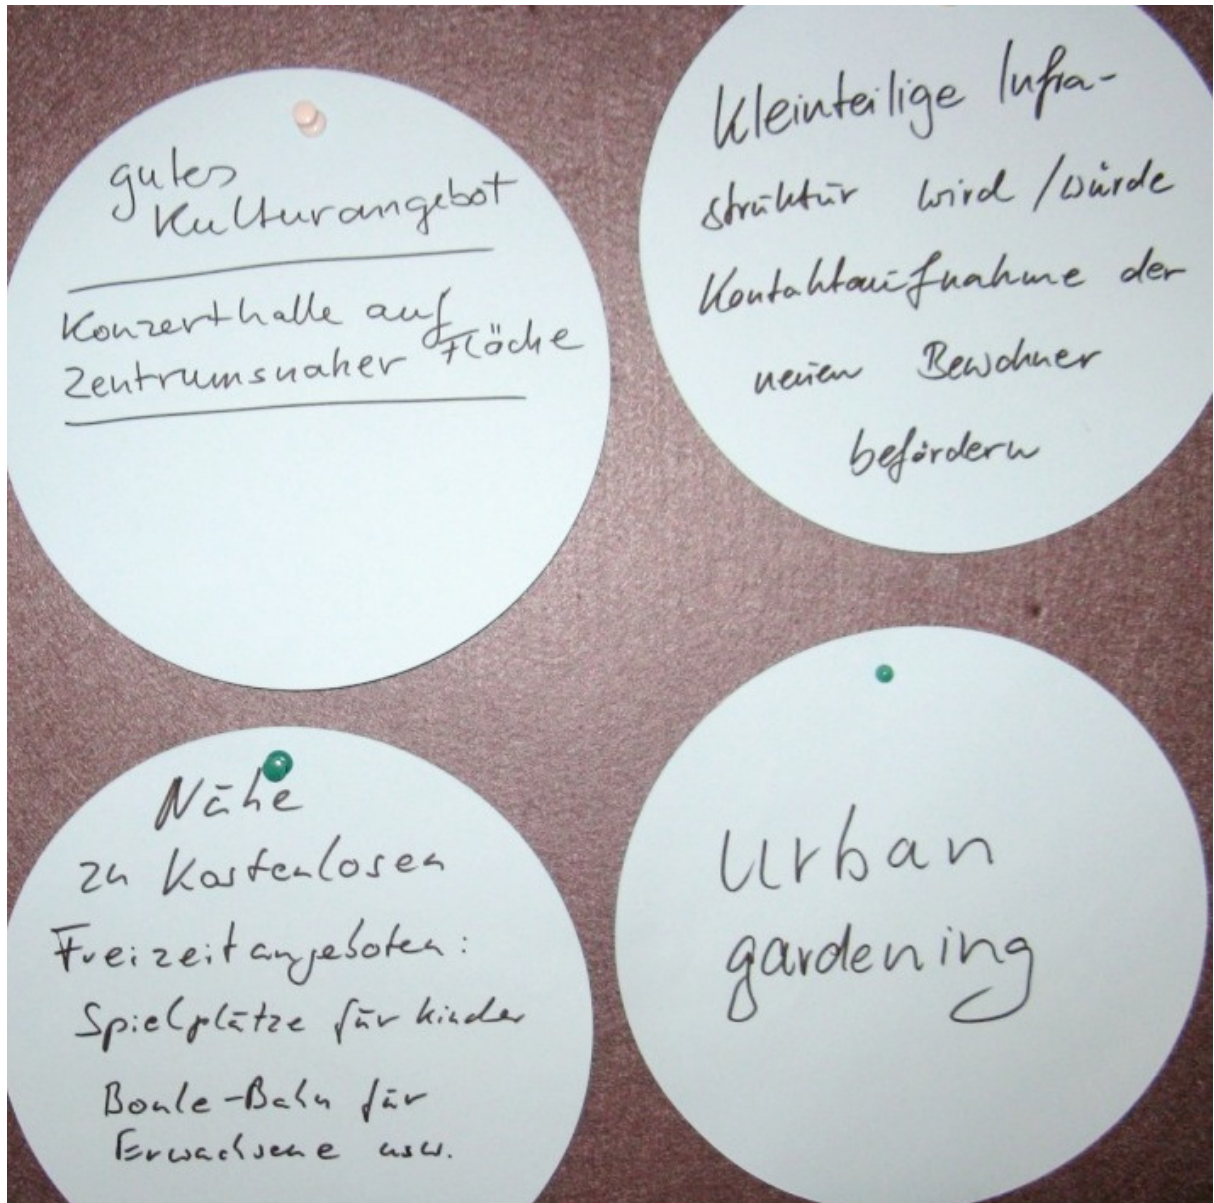 gutes
Kulturangebot
Konzerthalle auf
zentrumsnaher Fläche
Kleinteilige Infra-
struktur wird / würde
Kontaktaufnahme der
neuen Bewohner
befördern
Nähe
zu kostenlosen
Freizeitangeboten:
Spielplätze für Kinder
Boule-Bahn für
Erwachsene usw.
Urban
gardening